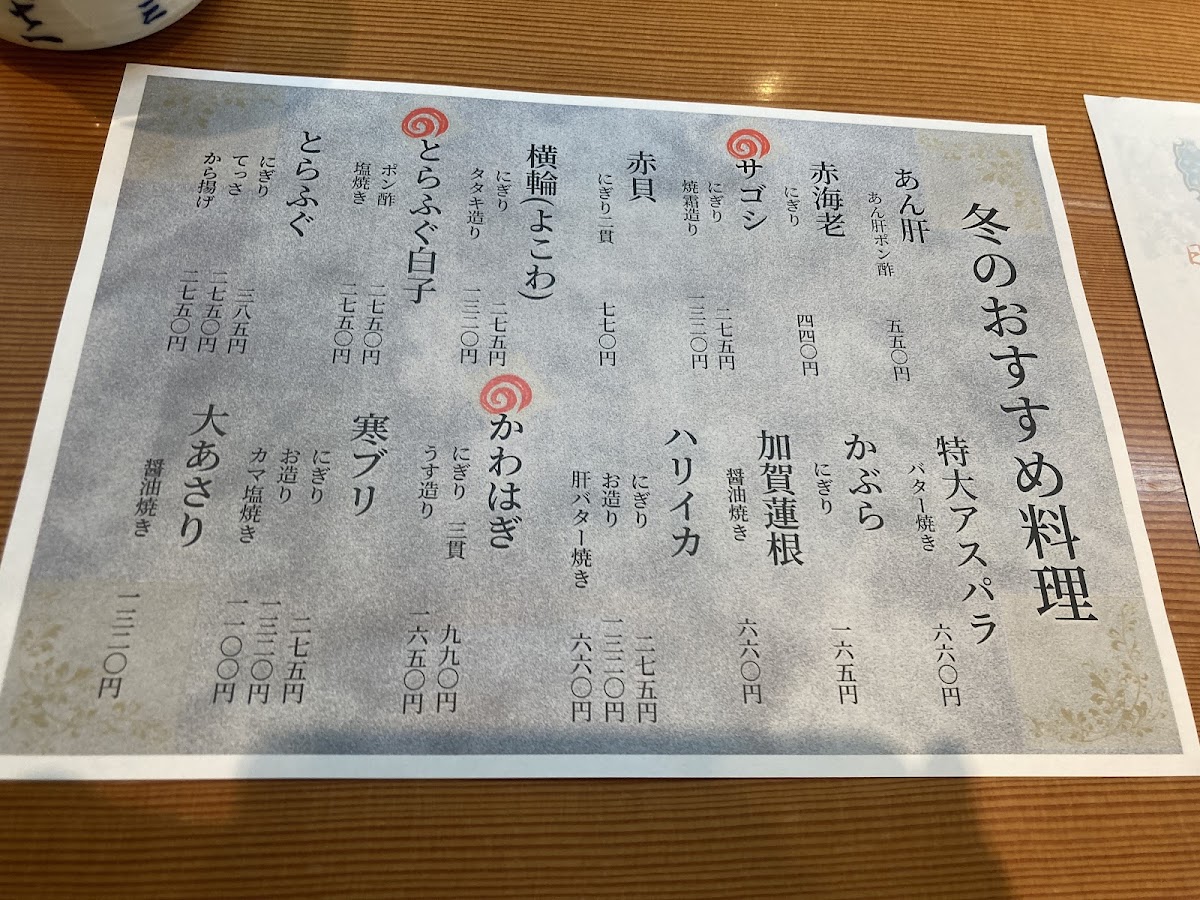 冬のおすすめ料理
あん肝
あん肝ポン酢 五五〇円
赤海老
にぎり 四四〇円
サゴシ
にぎり 二七五円
焼霜造り 一三二〇円
赤貝
にぎり二貫 七七〇円
横輪(よこわ)
にぎり 二七五円
タタキ造り 一三二〇円
とらふぐ白子
ポン酢 二七五〇円
塩焼き 二七五〇円
とらふぐ
にぎり 三八五円
てっさ 二七五〇円
から揚げ 二七五〇円
特大アスパラ
バター焼き 六六〇円
かぶら
にぎり 一六五円
加賀蓮根
醤油焼き 六六〇円
ハリイカ
にぎり 二七五円
お造り 一三二〇円
肝バター焼き 六六〇円
かわはぎ
にぎり 三貫 九九〇円
うす造り 一六五〇円
寒ブリ
にぎり 二七五円
お造り 一三二〇円
カマ塩焼き 一一〇〇円
大あさり
醤油焼き 一三二〇円